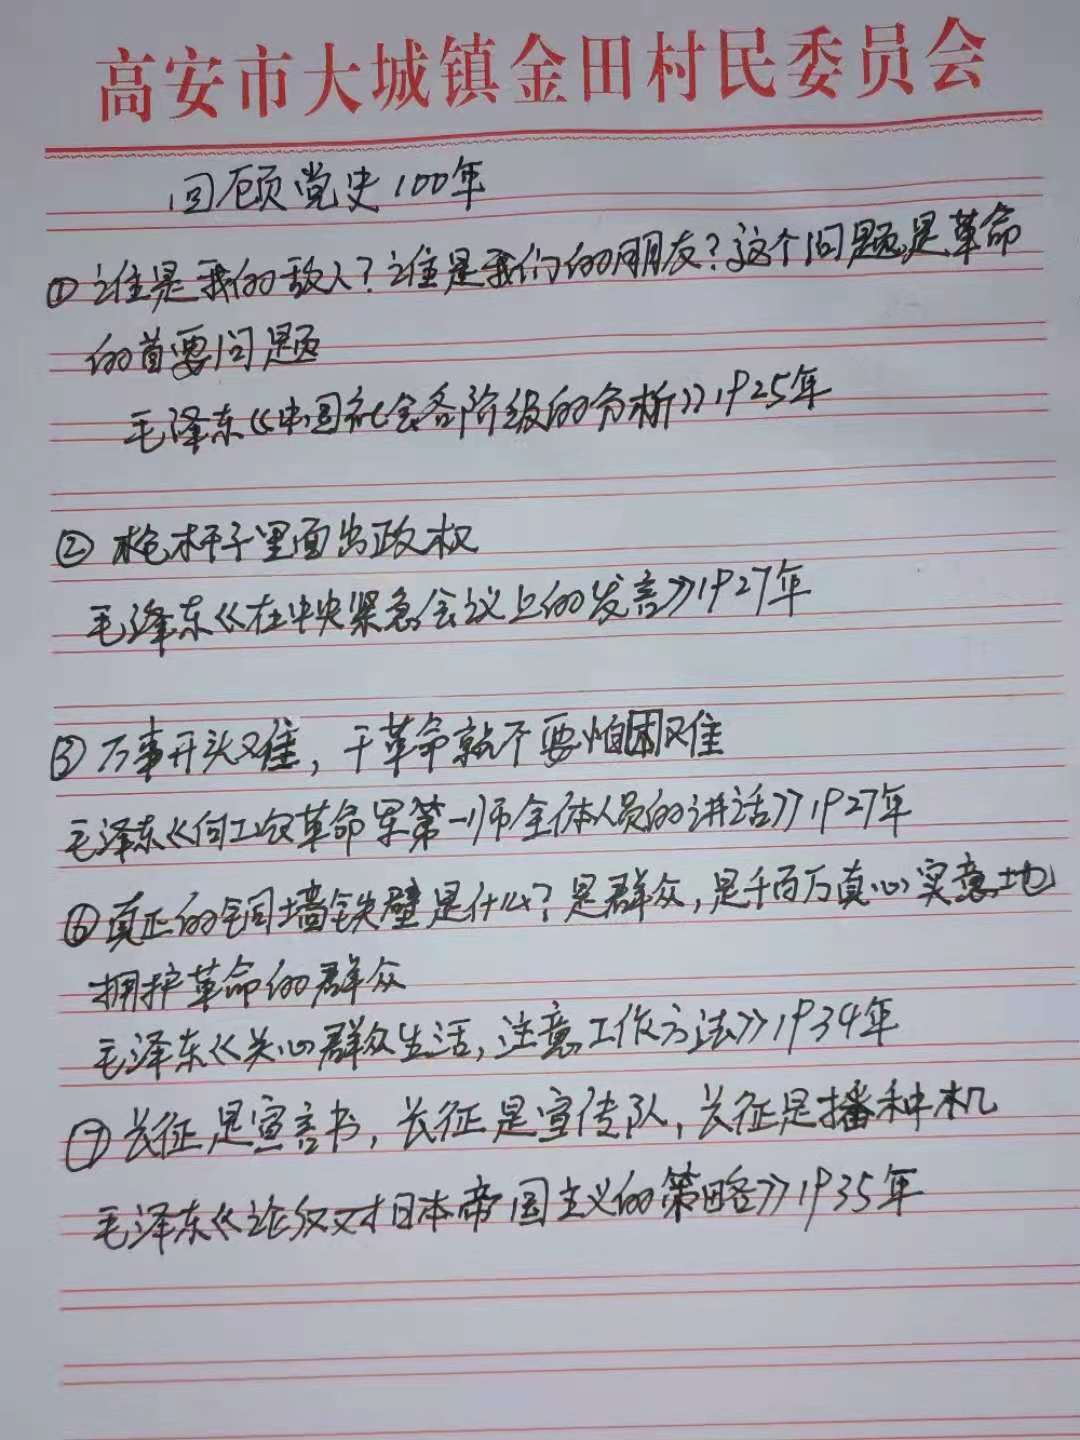 高安市大城镇金田村民委员会
回顾党史100年
①谁是我的敌人?谁是我们的朋友?这个问题是革命
的首要问题
毛泽东《中国社会各阶级的分析》1925年
②枪杆子里面出政权
毛泽东《在中央紧急会议上的发言》1927年
③万事开头难,干革命就不要怕困难
毛泽东《向工农革命军第一师全体人员的讲话》1927年
⑥真正的铜墙铁壁是什么?是群众,是千百万真心实意地
拥护革命的群众
毛泽东《关心群众生活,注意工作方法》1934年
⑦长征是宣言书,长征是宣传队,长征是播种机
毛泽东《论反对日本帝国主义的策略》1935年